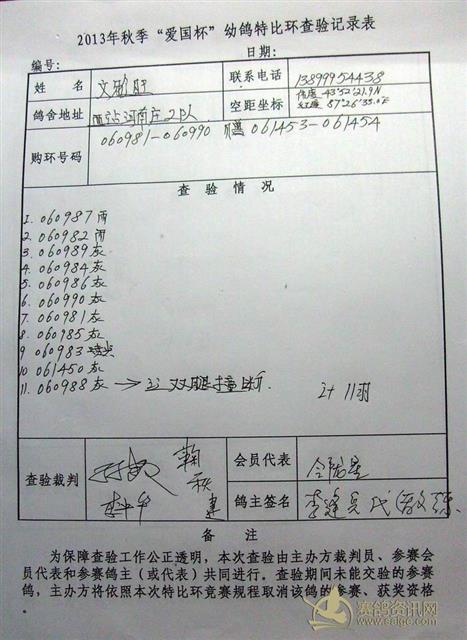 2013年秋季“爱国杯”幼鸽特比环查验记录表
编号：
日期：
姓名
联系电话 13899954438
鸽舍地址 河南庄2队
空距坐标 43°52'21.9N
87°26'35.0E
购环号码 060981-060990 赠 061453-061454
查验情况
1. 060987 雨
2. 060982 雨
3. 060989 灰
4. 060984 灰
5. 060986 灰
6. 060990 灰
7. 060981 灰
8. 060985 灰
9 060983
10 061450 灰
11. 060988 灰 → 双腿撞断
计 11羽
查验裁判
会员代表
鸽主签名
备注
为保障查验工作公正透明，本次查验由主办方裁判员、参赛会
员代表和参赛鸽主（或代表）共同进行。查验期间未能交验的参赛
鸽，主办方将依照本次特比环竞赛规程取消该鸽的参赛、获奖资格
。
赛鸽资讯网